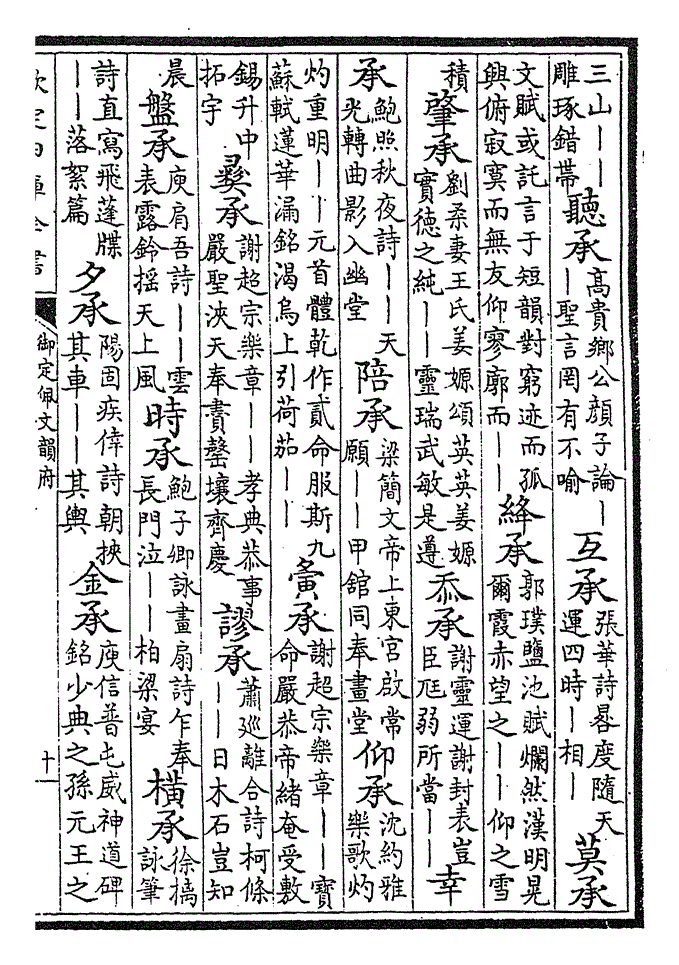 三山——雕琢錯帶 聽承 高貴鄉公顏子論—聖言罔有不喻 互承 張華詩晷度隨天運四時—相— 莫承
文賦或託言于短韻對窮迹而孤興俯寂寞而無友仰寥廓而—— 絳承 郭璞鹽池賦爛然漢明晃爾霞赤望之——仰之雪
積 肇承 劉柔妻王氏姜嫄頌英英姜嫄實德之純——靈瑞武敏是遵 忝承 謝靈運謝封表豈臣尫弱所當—— 幸
承 鮑照秋夜詩——天光轉曲影入幽堂 陪承 梁簡文帝上東宮啟常願——甲館同奉畫堂 仰承 沈約雅樂歌灼
灼重明——元首體乾作貳命服斯九蘇軾蓮華漏銘渴烏上引荷茄—— 夤承 謝超宗樂章——寶命嚴恭帝緒奄受敷
錫升中拓宇 彞承 謝超宗樂章——孝典恭事嚴聖浹天奉賮罄壤齊慶 謬承 蕭巡離合詩柯條——日木石豈知
晨 盤承 庾肩吾詩——雲表露鈴搖天上風 時承 鮑子卿詠畫扇詩乍奉長門泣——柏梁宴 橫承 徐摛詠筆
詩直寫飛蓬牒——落絮篇 夕承 陽固疾倖詩朝挾其車——其輿 金承 庾信普屯威神道碑銘少典之孫元王之
欽定四庫全書 御定佩文韻府 十